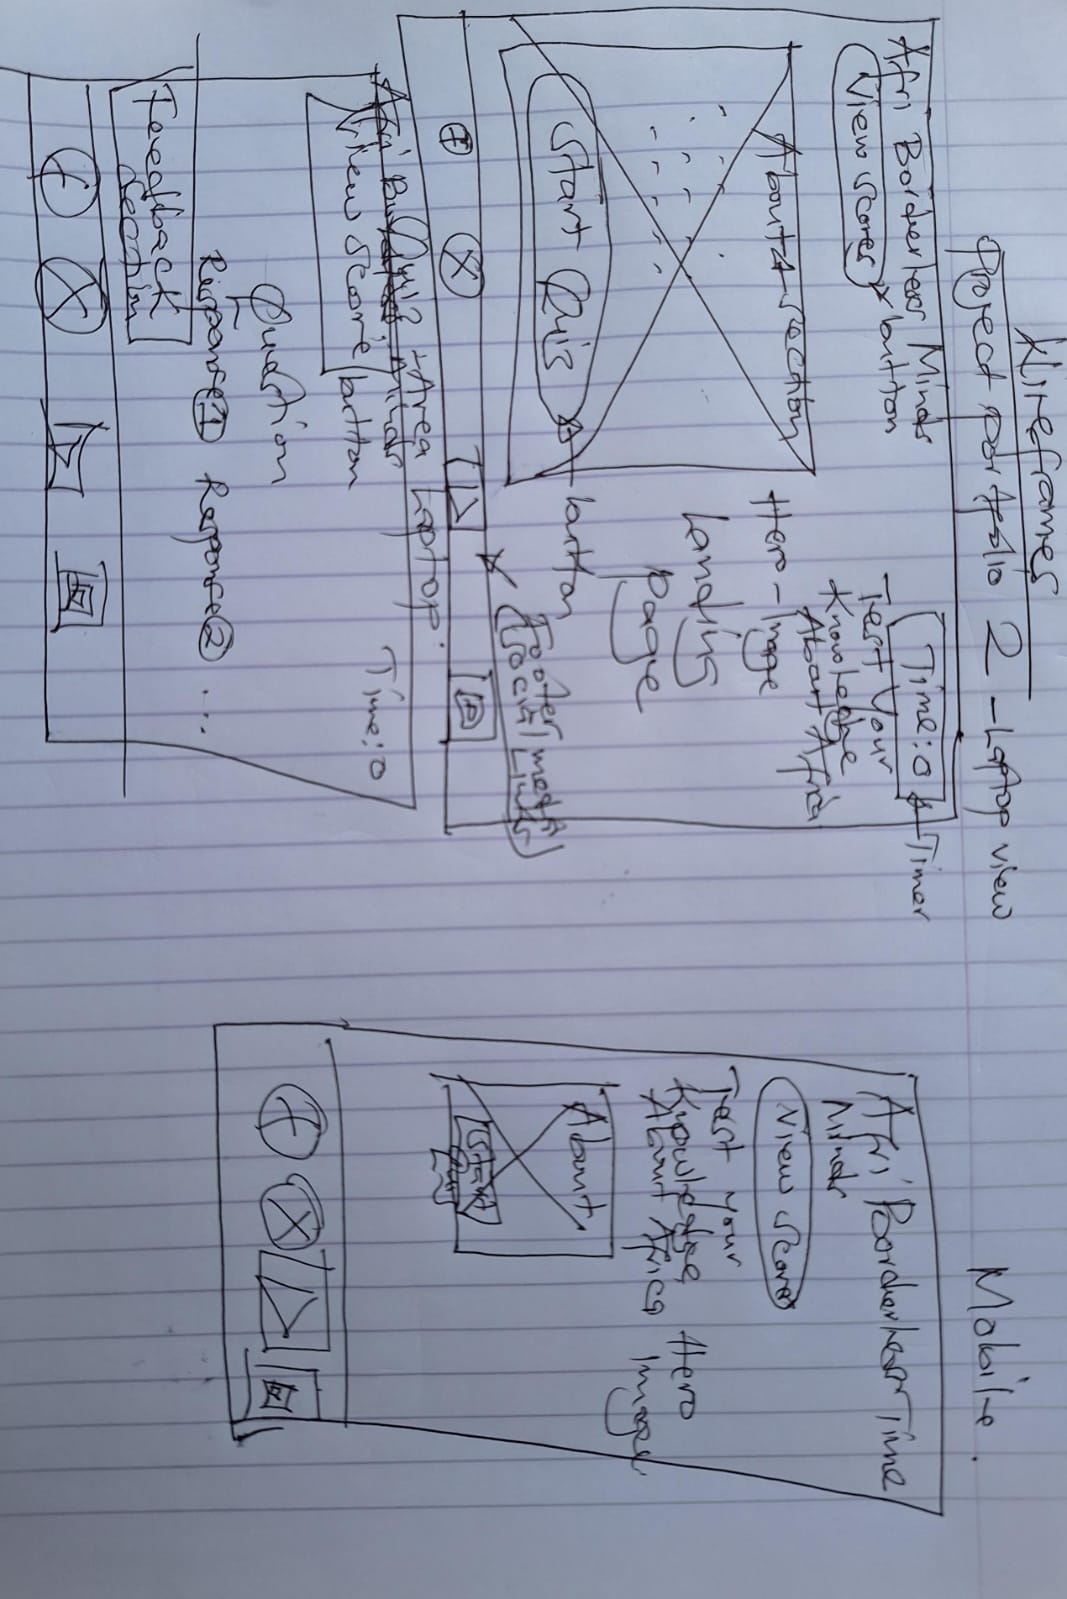 Wireframes
Project portfolio 2 - Laptop view
Afri Borderless Minds
View scores
button
Time: 0
Timer
Test Your
Knowledge
About Afric
About us - section
Hero - Image
Landing
Page
Start Quiz
button
f
X
Footer
(Social media
Links)
Laptop.
Quiz Area
View Score
button
Time: 0
Question
Response 1
Response 2
....
Feedback
section
f
X
Mobile.
Afri Borderless
Minds
Time
View Scores
Test your
Knowledge
About Africa
Hero
Image
About
Start
f
X